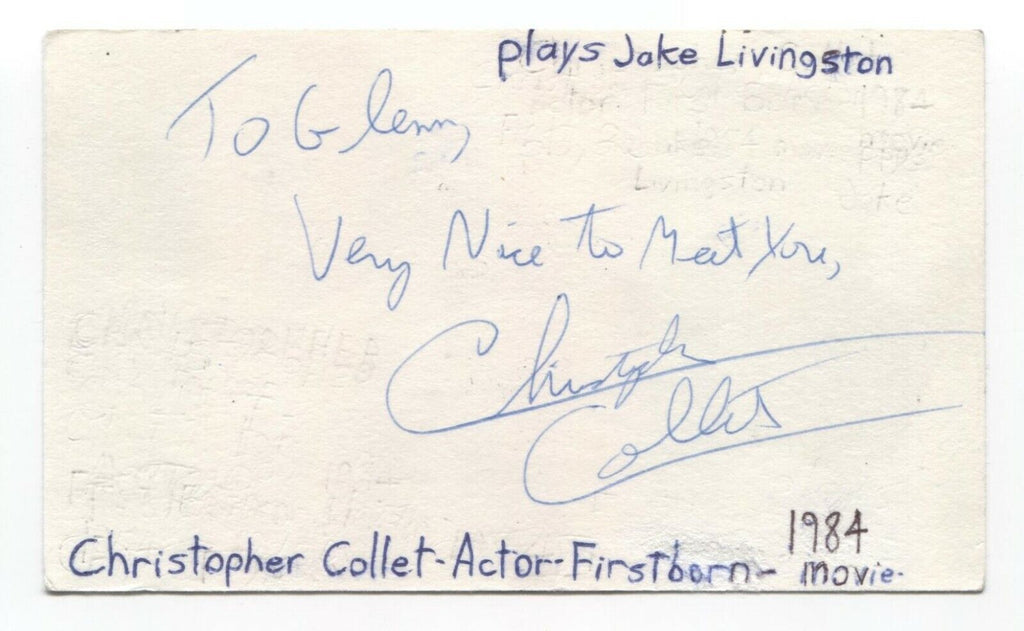 plays Jake Livingston
To Glenn,
Very Nice to Meet You,
Christopher
Collet
1984
Christopher Collet-Actor-Firstborn- movie.